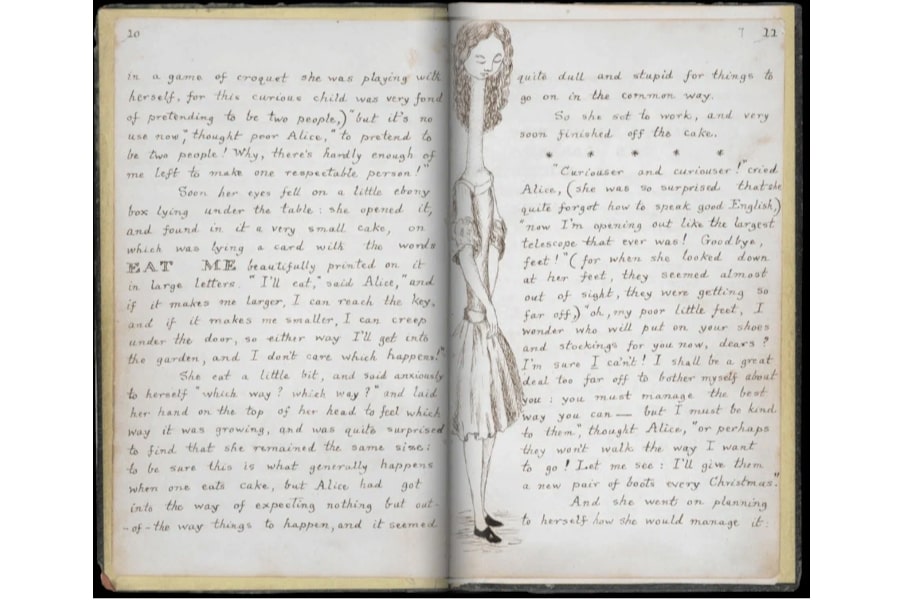 10
in a game of croquet she was playing with
herself, for this curious child was very fond
of pretending to be two people,) "but it's no
use now," thought poor Alice, "to pretend to
be two people! Why, there's hardly enough of
me left to make one respectable person!"
Soon her eyes fell on a little ebony
box lying under the table: she opened it,
and found in it a very small cake, on
which was lying a card with the words
EAT ME beautifully printed on it
in large letters. "I'll eat," said Alice, "and
if it makes me larger, I can reach the key,
and if it makes me smaller, I can creep
under the door, so either way I'll get into
the garden, and I don't care which happens!"
She eat a little bit, and said anxiously
to herself "which way? which way?" and laid
her hand on the top of her head to feel which
way it was growing, and was quite surprised
to find that she remained the same size:
to be sure this is what generally happens
when one eats cake, but Alice had got
into the way of expecting nothing but out-
-of-the way things to happen, and it seemed
11
quite dull and stupid for things to
go on in the common way.
So she set to work, and very
soon finished off the cake.
* * * * *
"Curiouser and curiouser!" cried
Alice, (she was so surprised that she
quite forgot how to speak good English,)
"now I'm opening out like the largest
telescope that ever was! Goodbye,
feet!" (for when she looked down
at her feet, they seemed almost
out of sight, they were getting so
far off,) "oh, my poor little feet, I
wonder who will put on your shoes
and stockings for you now, dears?
I'm sure I can't! I shall be a great
deal too far off to bother myself about
you: you must manage the best
way you can — but I must be kind
to them", thought Alice, "or perhaps
they won't walk the way I want
to go! Let me see: I'll give them
a new pair of boots every Christmas."
And she went on planning
to herself how she would manage it: